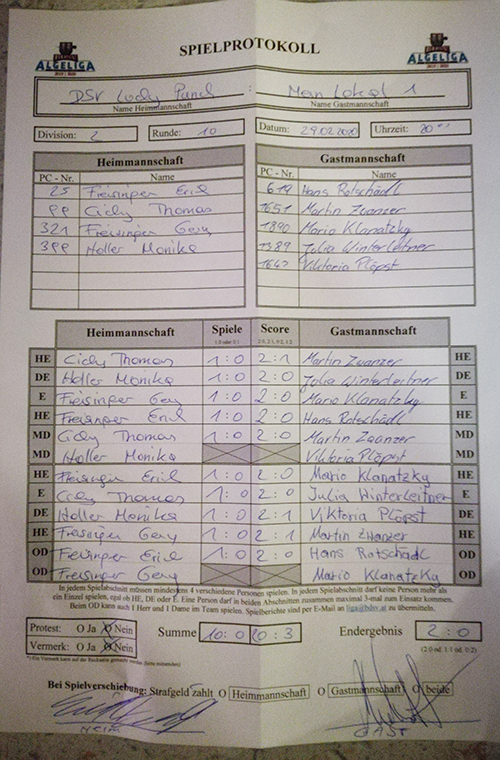 ALGELIGA
SPIELPROTOKOLL
ALGELIGA
DSV Lody Punch : Mein Lokal 1
Name Heimmannschaft Name Gastmannschaft
Division: 2 Runde: 10 Datum: 29.02.2020 Uhrzeit: 20
Heimmannschaft Gastmannschaft
PC - Nr. Name PC - Nr. Name
25 Freisinger Erich 619 Hans Rotschädl
99 Cichy Thomas 1651 Martin Zwanzer
321 Freisinger Gery 1890 Mario Klanatzky
399 Holler Monika 1389 Julia Winterleitner
1647 Viktoria Plöpst
Heimmannschaft Spiele Score Gastmannschaft
HE Cichy Thomas 1:0 2:1 Martin Zwanzer HE
DE Holler Monika 1:0 2:0 Julia Winterleitner DE
E Freisinger Gery 1:0 2:0 Mario Klanatzky E
HE Freisinger Erich 1:0 2:0 Hans Rotschädl HE
MD Cichy Thomas 1:0 2:0 Martin Zwanzer MD
MD Holler Monika Viktoria Plöpst MD
HE Freisinger Erich 1:0 2:0 Mario Klanatzky HE
E Cichy Thomas 1:0 2:0 Julia Winterleitner E
DE Holler Monika 1:0 2:1 Viktoria Plöpst DE
HE Freisinger Gery 1:0 2:1 Martin Zwanzer HE
OD Freisinger Erich 1:0 2:0 Hans Rotschädl OD
OD Freisinger Gery Mario Klanatzky OD
In jedem Spielabschnitt müssen mindestens 4 verschiedene Personen spielen. In jedem Spielabschnitt darf keine Person mehr als
ein Einzel spielen, egal ob HE, DE oder E. Eine Person darf in beiden Abschnitten zusammen maximal 3-mal zum Einsatz kommen.
Beim OD kann auch 1 Herr und 1 Dame im Team spielen. Spielberichte sind per E-Mail an liga@bdsv.at zu übermitteln.
Protest: O Ja O Nein Summe 10:0 20:3 Endergebnis 2:0
Vermerk: O Ja O Nein (2:0 od. 1:1 od. 0:2)
Bei Spielverschiebung: Strafgeld zahlt O Heimmannschaft O Gastmannschaft O beide
HEIM GAST